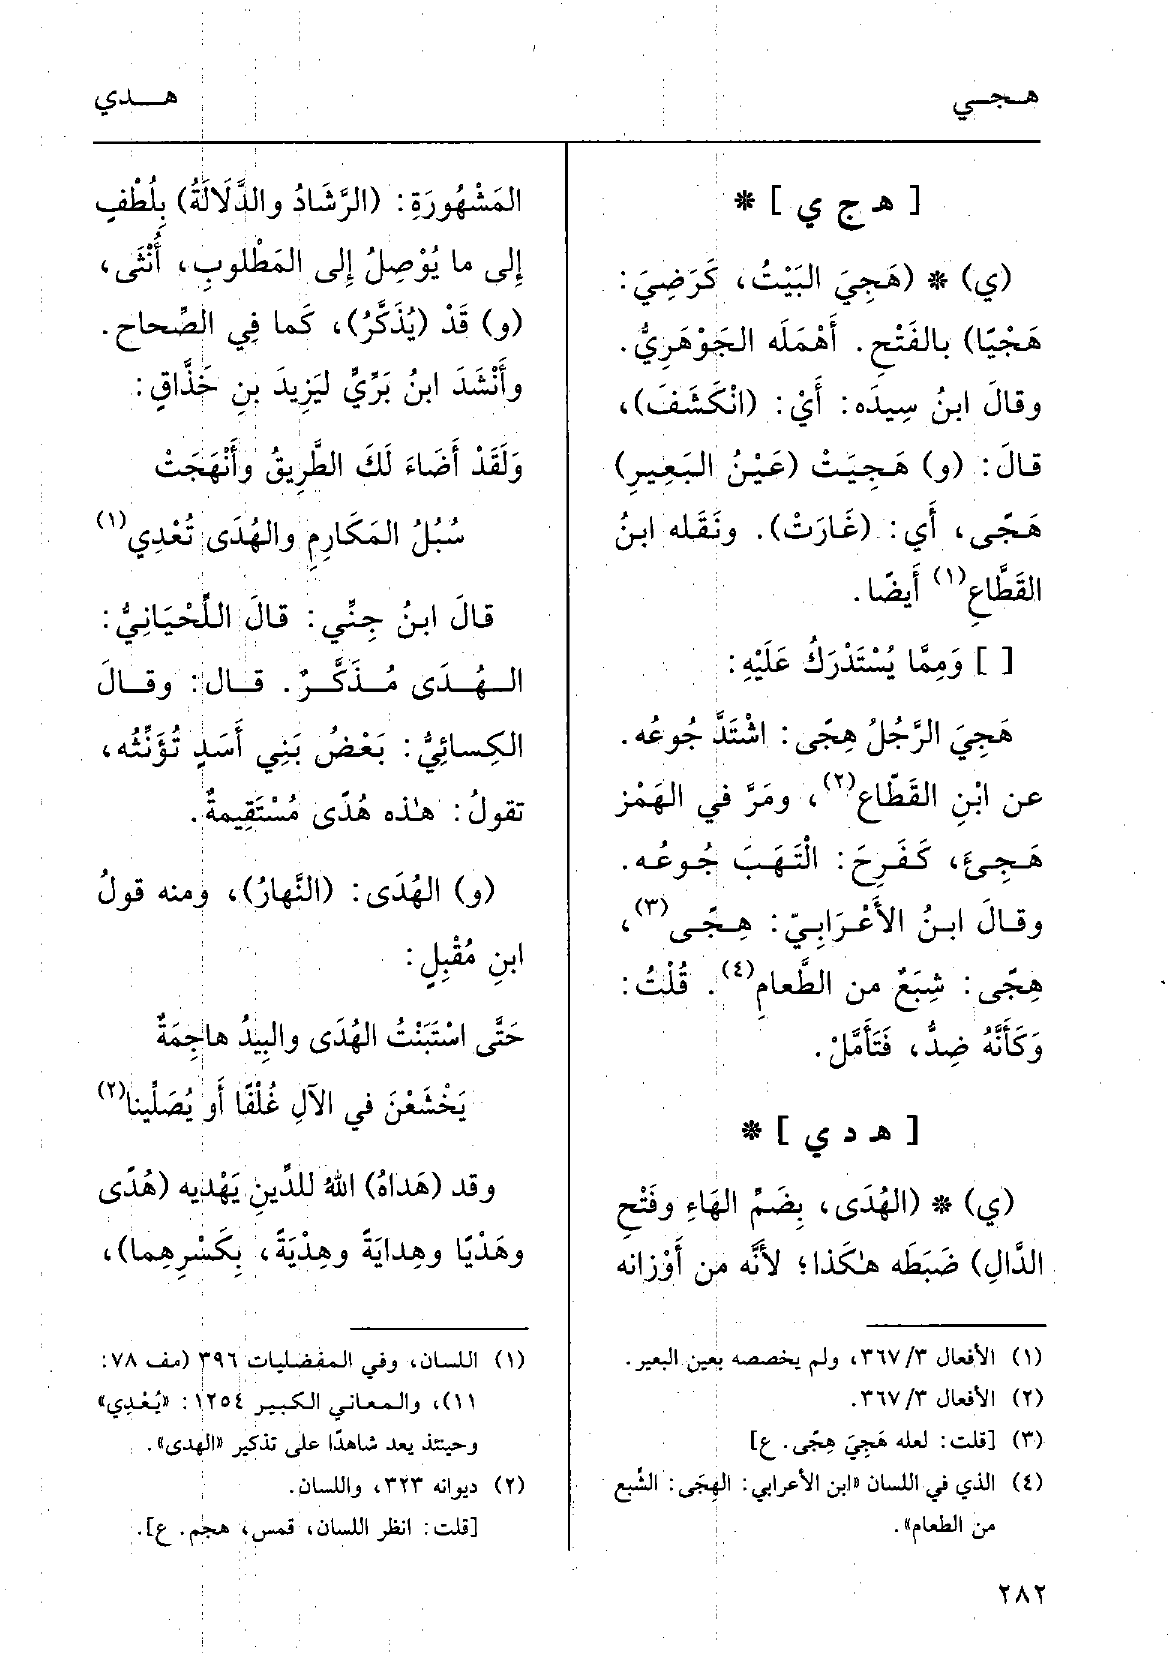 هـجـي
هـدي
[ هـ ج ي ] *
(ي) * (هَجِيَ البَيْتُ، كَرَضِيَ:
هَجْيًا) بالفَتْحِ. أَهْمَله الجَوْهَرِيُّ.
وقالَ ابنُ سِيدَه: أَيْ: (انْكَشَفَ)،
قالَ: (و) هَجِيَتْ (عَيْنُ البَعِيرِ)
هَجًى، أَي: (غَارَتْ). ونَقَله ابنُ
القَطَّاعِ(١) أَيضًا.
[ ] وَمِمَّا يُسْتَدْرَكُ عَلَيْهِ:
هَجِيَ الرَّجُلُ هِجًى: اشْتَدَّ جُوعُه.
عن ابْنِ القَطّاع(٢)، ومَرَّ في الهَمْز
هَجِئَ، كَفَرِحَ: الْتَهَبَ جُوعُه.
وقالَ ابنُ الأَعْرَابِيّ: هِجًى(٣)،
هِجًى: شِبَعٌ من الطَّعامِ(٤). قُلْتُ:
وَكَأَنَّهُ ضِدٌّ، فَتَأَمَّلْ.
[ هـ د ي ] *
(ي) * (الهُدَى، بِضَمِّ الهَاءِ وفَتْحِ
الدَّالِ) ضَبَطَه هٰكَذا؛ لأَنَّه من أَوْزانه
(١) الأفعال ٣/ ٣٦٧، ولم يخصصه بعين البعير.
(٢) الأفعال ٣/ ٣٦٧.
(٣) [قلت: لعله هَجِيَ هِجًى. ع]
(٤) الذي في اللسان «ابن الأعرابي: الهِجَى: الشِّبع
من الطعام».
المَشْهُورَةِ: (الرَّشَادُ والدَّلَالَةُ) بِلُطْفٍ
إِلى ما يُوْصِلُ إِلى المَطْلوبِ، أُنْثَى،
(و) قَدْ (يُذَكَّرُ)، كَما فِي الصِّحاح.
وأَنْشَدَ ابنُ بَرِّيٍّ لِيَزِيدَ بنِ خَذَّاقٍ:
وَلَقَدْ أَضَاءَ لَكَ الطَّرِيقُ وأَنْهَجَتْ
سُبُلُ المَكَارِمِ والهُدَى تُعْدِي(١)
قالَ ابنُ جِنِّي: قالَ اللِّحْيَانِيُّ:
الهُدَى مُذَكَّرٌ. قال: وقالَ
الكِسائِيُّ: بَعْضُ بَنِي أَسَدٍ تُؤَنِّثُه،
تقولُ: هـٰذه هُدًى مُسْتَقِيمةٌ.
(و) الهُدَى: (النَّهارُ)، ومنه قولُ
ابنِ مُقْبِلٍ:
حَتَّى اسْتَبَنْتُ الهُدَى والبِيدُ هاجِمَةٌ
يَخْشَعْنَ في الآلِ غُلْفًا أَو يُصَلِّينا(٢)
وقد (هَداهُ) اللهُ للدِّينِ يَهْدِيه (هُدًى
وهَدْيًا وهِدايَةً وهِدْيَةً، بِكَسْرِهِما)،
(١) اللسان، وفي المفضليات ٣٩٦ (مف ٧٨:
١١)، والمعاني الكبير ١٢٥٤: «يُعْدِي»
وحينئذ يعد شاهدًا على تذكير «الهدى».
(٢) ديوانه ٣٢٣، واللسان.
[قلت: انظر اللسان، قمس، هجم. ع].
٢٨٢